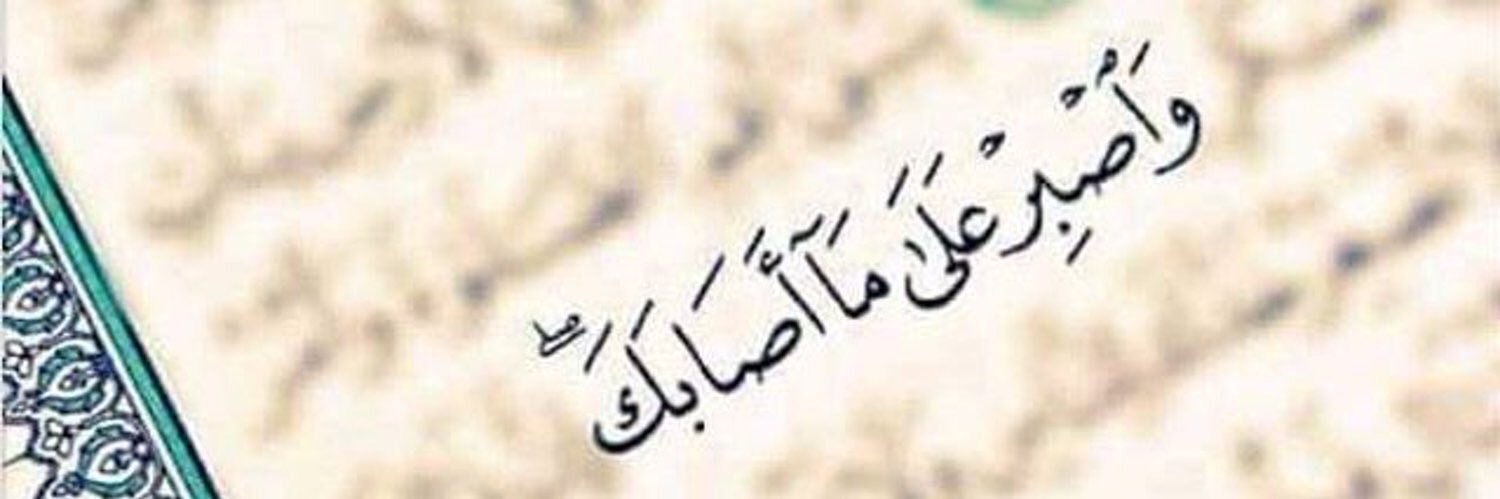 وَٱصۡبِرۡ عَلَىٰ مَآ أَصَابَكَۖ